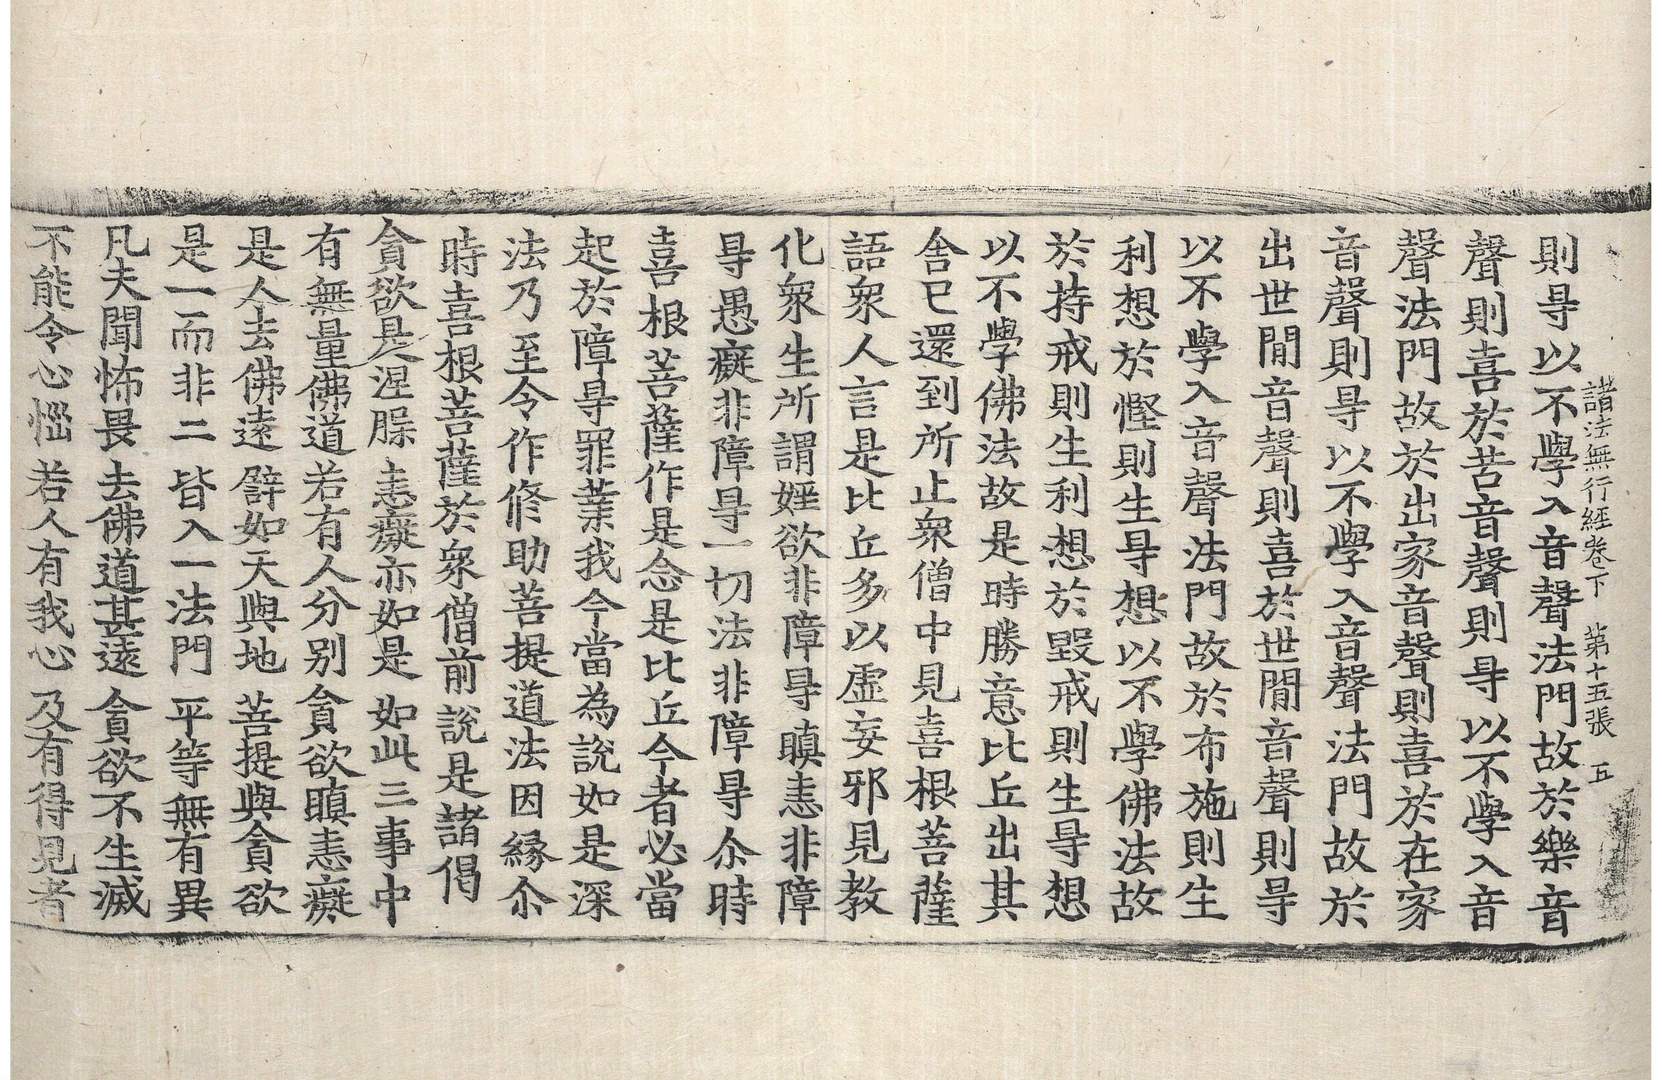 諸法無行經卷下 第十五張 五
則㝵以不學入音聲法門故於樂音
聲則喜於苦音聲則㝵以不學入音
聲法門故於出家音聲則喜於在家
音聲則㝵以不學入音聲法門故於
出世間音聲則喜於世間音聲則㝵
以不學入音聲法門故於布施則生
利想於慳則生㝵想以不學佛法故
於持戒則生利想於毀戒則生㝵想
以不學佛法故是時勝意比丘出其
舍已還到所止衆僧中見喜根菩薩
語衆人言是比丘多以虛妄邪見教
化衆生所謂婬欲非障㝵瞋恚非障
㝵愚癡非障㝵一切法非障㝵尒時
喜根菩薩作是念是比丘今者必當
起於障㝵罪業我今當為說如是深
法乃至令作修助菩提道法因緣尒
時喜根菩薩於衆僧前說是諸偈
貪欲是涅槃 恚癡亦如是 如此三事中
有無量佛道 若有人分別 貪欲瞋恚癡
是人去佛遠 譬如天與地 菩提與貪欲
是一而非二 皆入一法門 平等無有異
凡夫聞怖畏 去佛道甚遠 貪欲不生滅
不能令心惱 若人有我心 及有得見者